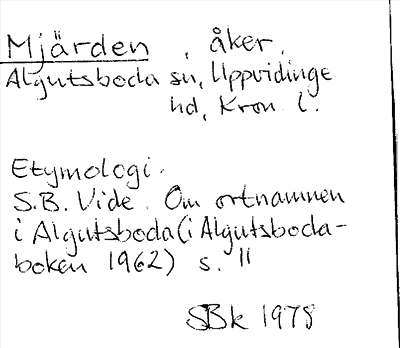 Mjärden, åker.
Algutsboda sn, Uppvidinge
hd, Kron l.
Etymologi.
S.B. Vide. Om ortnamnen
i Algutsboda (i Algutsboda-
boken 1962) s. 11
SBk 1978